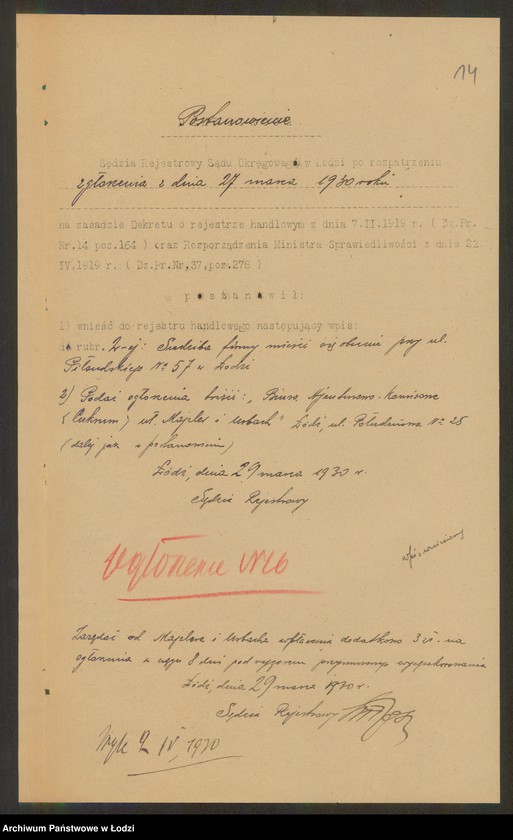 14
Postanowienie
Sędzia Rejestrowy Sądu Okręgowego w Łodzi po rozpatrzeniu
zgłoszenia z dnia 27 marca 1930 roku
na zasadzie Dekretu o rejestrze handlowym z dnia 7.II.1919 r. ( Dz.Pr.
Nr.14 poz.164 ) oraz Rozporządzenia Ministra Sprawiedliwości z dnia 22
IV.1919 r. ( Dz.Pr.Nr,37,poz.278 )
p o s t a n o w i ł:
1) wnieść do rejestru handlowego następujący wpis:
do rubr. 2-ej: Siedziba firmy mieści się obecnie przy ul.
Piłsudskiego № 57 w Łodzi
2) Podać ogłoszenia treści: "Biuro Ajenturowo-Komisowe
(Cukrum) wł. Majzler i Urbach" Łódź, ul. Południowa № 28
(dalej jak w postanowieniu)
Łódź, dnia 29 marca 1930 r.
Sędzia Rejestrowy
Ogłoszenie №16
Zażądać od Majzlera i Urbacha wpłacenia dodatkowo 3 zł. na
ogłoszenia w ciągu 8 dni pod rygorem przymusowego wyegzekwowania
Łódź, dnia 29 marca 1930 r.
Sędzia Rejestrowy
Wyk 9 IV 1930
Archiwum Państwowe w Łodzi